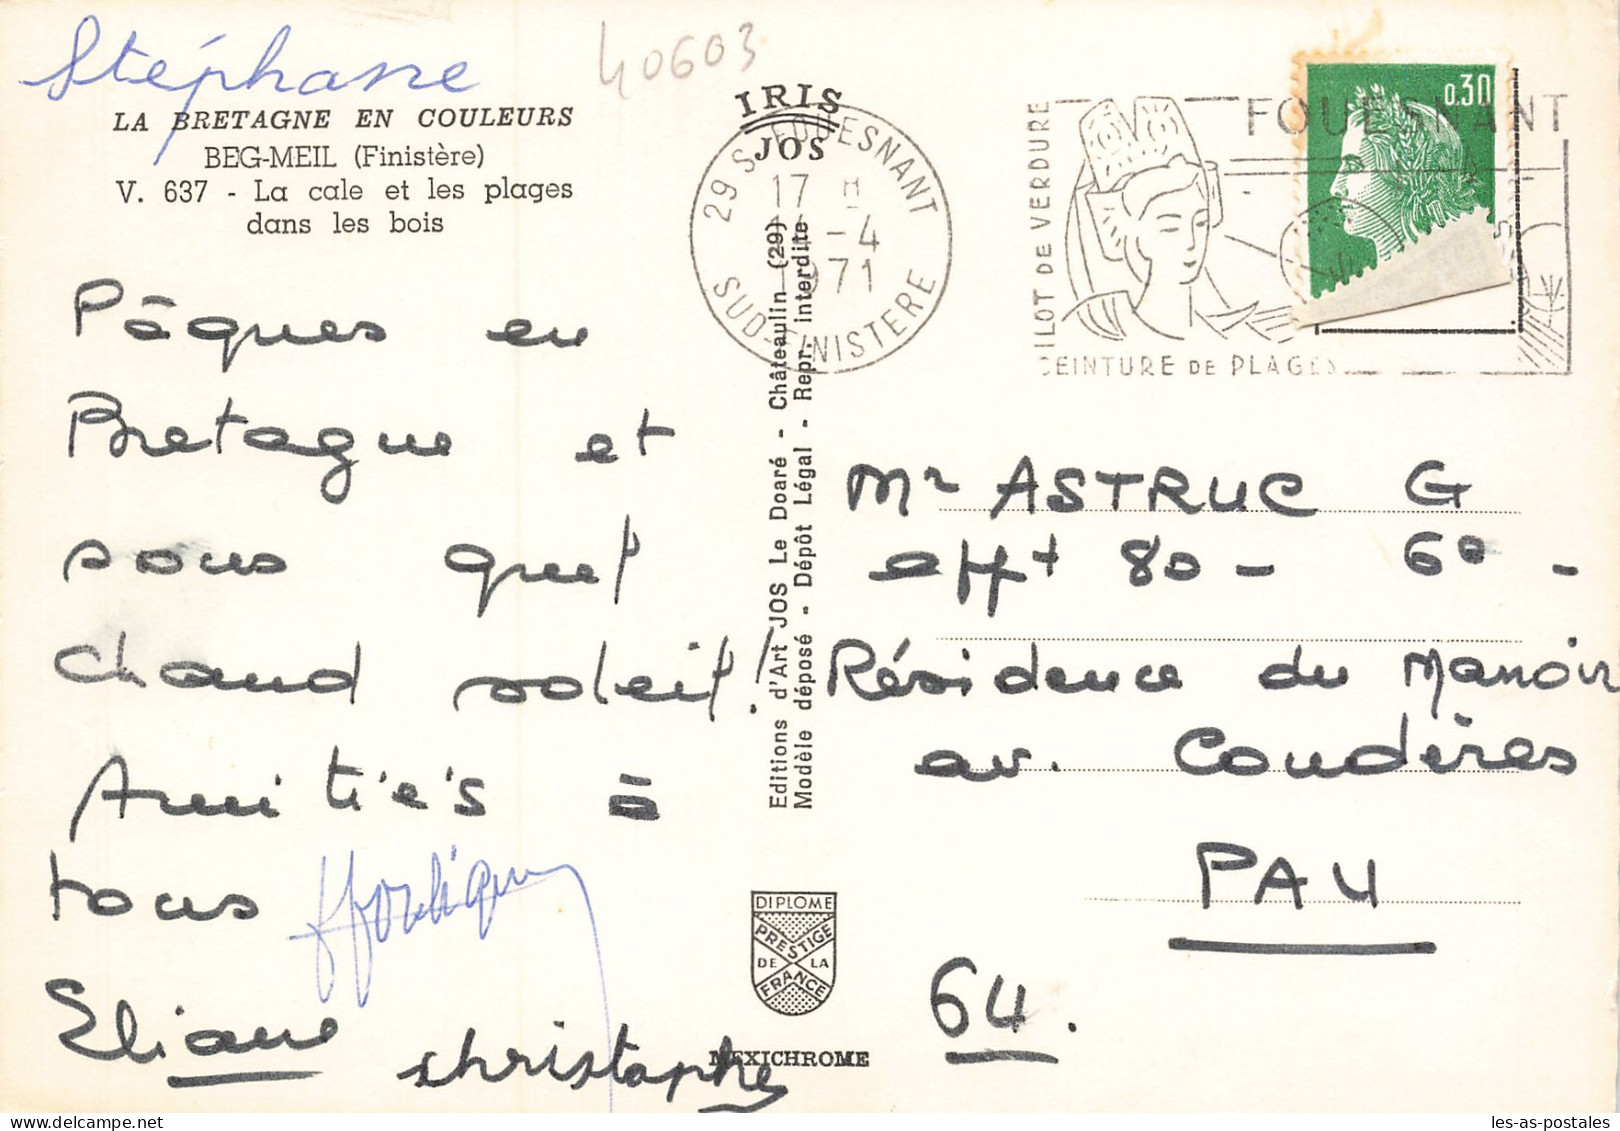 Stéphane
40603
LA BRETAGNE EN COULEURS
BEG-MEIL (Finistère)
V. 637 - La cale et les plages
dans les bois
Pâques en
Bretagne et
sous quel
chaud soleil !
Amitiés à
tous
Eliane
christophe
IRIS
JOS
29 S. FOUESNANT
17 H
-4
1971
SUD-FINISTERE
Editions d'Art JOS Le Doaré - Châteaulin (29)
Modèle déposé - Dépôt Légal - Repr. interdite
DIPLOME
PRESTIGE
DE LA
FRANCE
MEXICHROME
FOUESNANT
ILOT DE VERDURE
CEINTURE DE PLAGES
0,30
Mr ASTRUC G
appt 80 - 6º -
Résidence du Manoir
av. Coudères
PAU
64.
les-as-postales